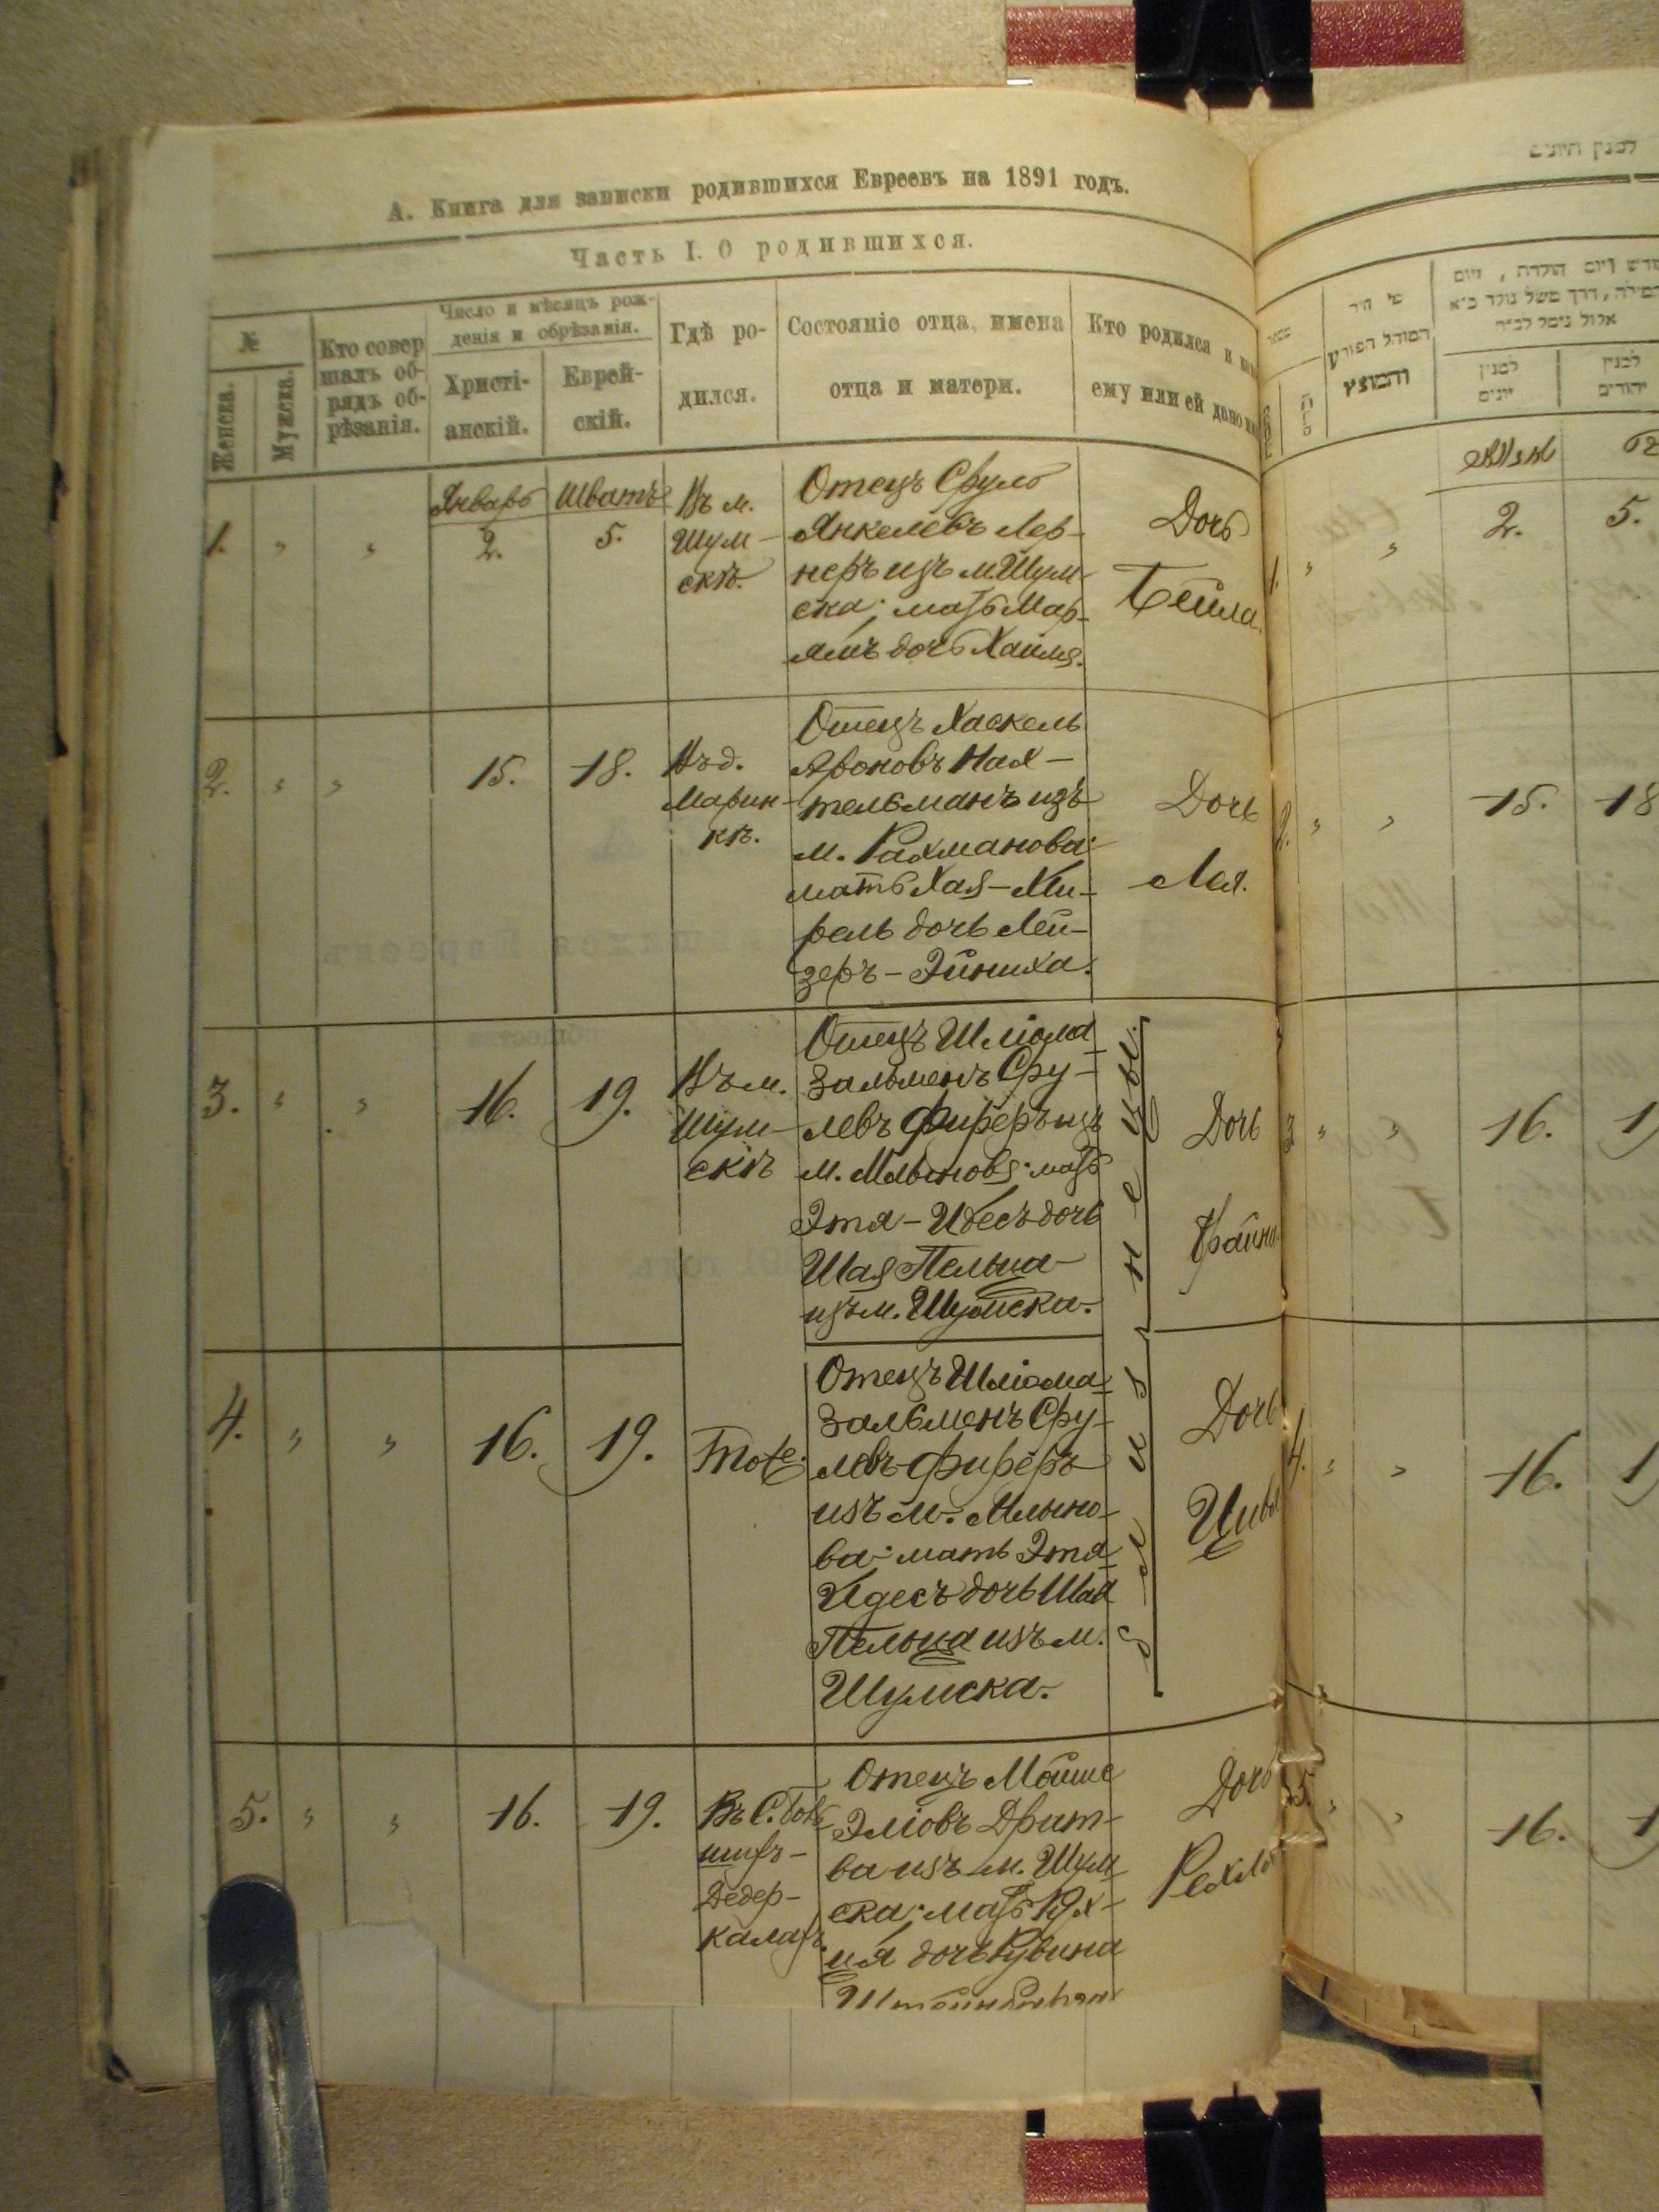 А. Книга для записки родившихся Евреевъ на 1891 годъ.
Часть I. О родившихся.
№
Женска.
Мужска.
Кто совер
шалъ об-
рядъ об-
рѣзанія.
Число и мѣсяцъ рож-
денія и обрѣзанія.
Христі-
анскій.
Еврей-
скій.
Гдѣ ро-
дился.
Состояніе отца, имена
отца и матери.
Кто родился и
ему или ей дано
1. " "
Январь
2.
Шватъ
5.
Въ м.
Шум-
скѣ.
Отецъ Сруль
Янкелевъ Лер-
неръ изъ м. Шум-
ска; мать Мар-
ямъ дочь Хаима.
Дочь
Бейла.
2. " "
15.
18.
Въ д.
Марин-
кѣ.
Отецъ Хаскель
Ароновъ Нах-
тельманъ изъ
м. Рахманова;
мать Хая-Ми-
рель дочь Лей-
зеръ-Эйниха.
Дочь
Лея.
3. " "
16.
19.
Въ м.
Шум-
скѣ
Отецъ Шлiома
Зальменъ Сру-
левъ Фиреръ изъ
м. Млынова; мать
Эта-Идесъ дочь
Шая Пельца
изъ м. Шумска.
Дочь
Фрайна
близнецы.
4. " "
16.
19.
Тоже.
Отецъ Шлiома
Зальменъ Сру-
левъ Фиреръ
изъ м. Млыно-
ва; мать Эта
Идесъ дочь Шая
Пельца изъ м.
Шумска.
Дочь
5. " "
16.
19.
Въ С.
Дедер-
калахъ.
Отецъ Мойше
Элiовъ Дрит-
ва изъ м. Шум
ска; мать Рух-
ця дочь Рувина
Дочь
למנין היונים
הולדת
המוהל הפורע
והמוצץ
אלול ניסל לב״ה
למנין
יונים
למנין
יהודים
1. " "
2.
5.
2. " "
15.
18
3 " "
16.
4. " "
16.
5. " "
16.